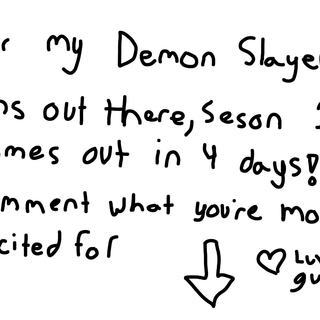 r my Demon Slayer
ns out there, Seson
mes out in 4 days!
mment what you're mo
cited for
♡ Luv
gu